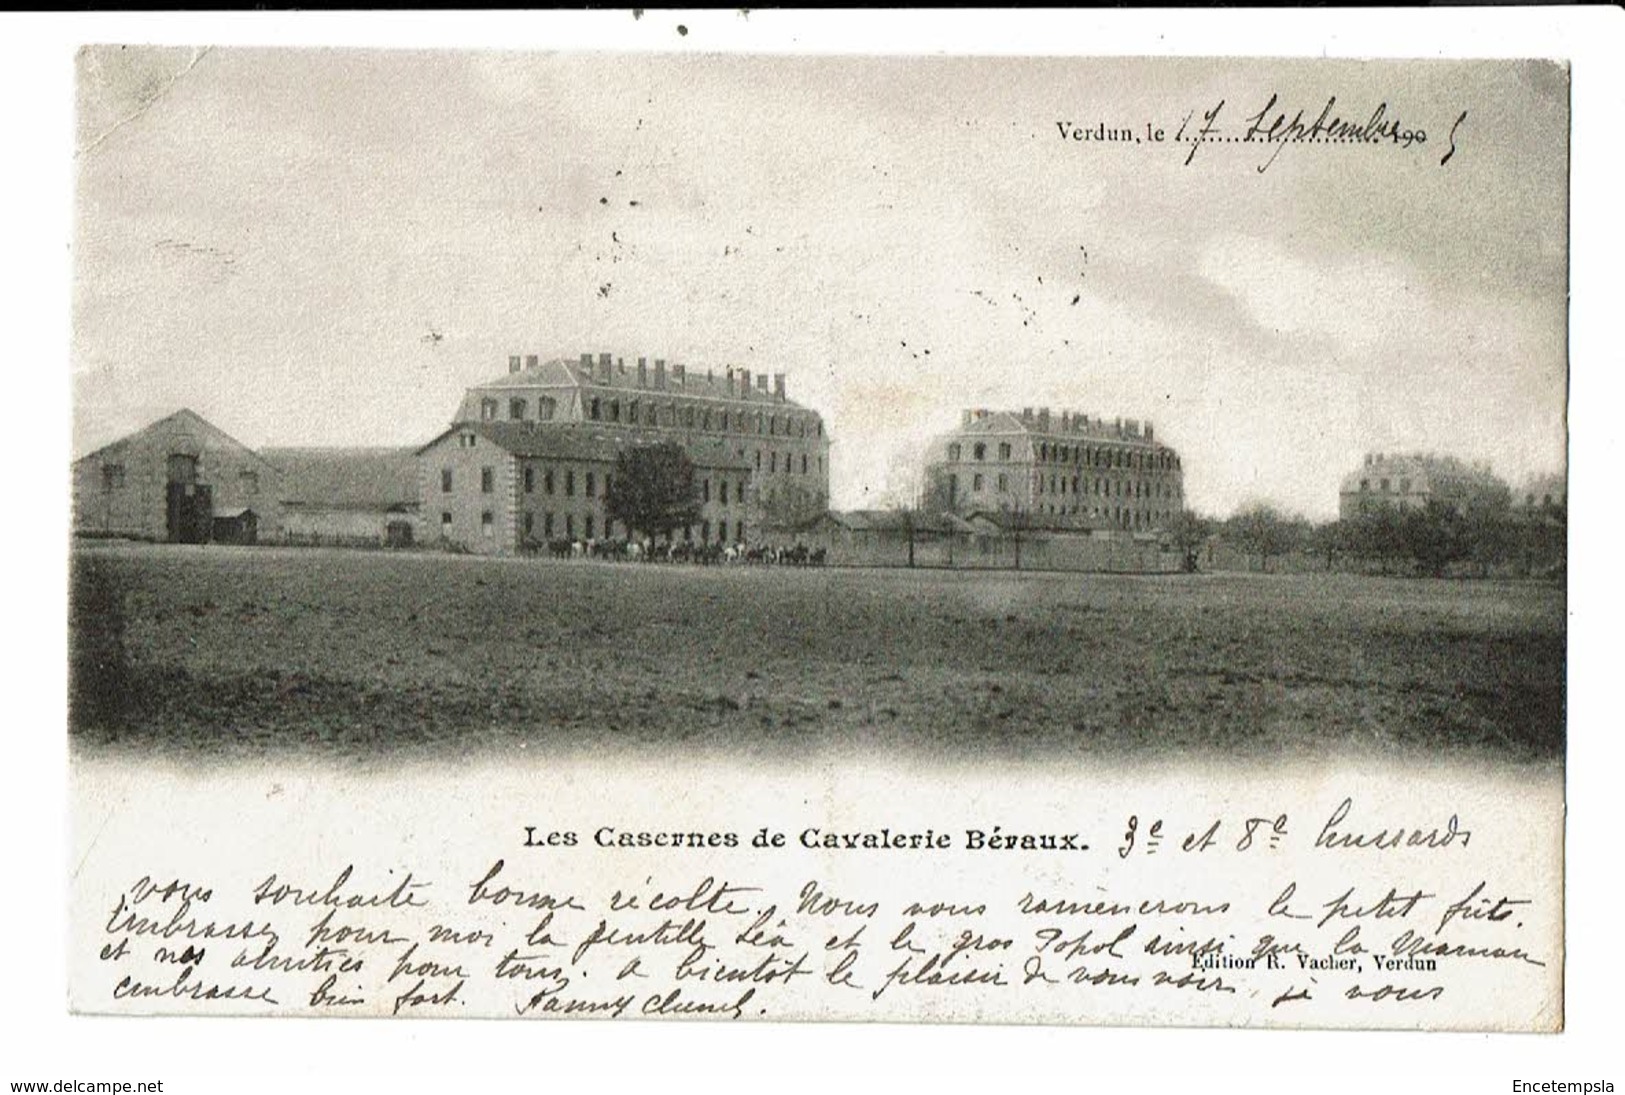 Verdun, le 17 Septembre 1905
Les Casernes de Cavalerie Bévaux. 3e et 8e hussards
vous souhaite bonne récolte. Nous vous ramènerons le petit fûts.
Embrassez pour moi la gentille Léa et le gros Popol ainsi que la Maman
et nos amitiés pour tous. a bientôt le plaisir de vous voir, je vous
Edition R. Vacher, Verdun
embrasse bien fort. Fanny
www.delcampe.net
Encetempsla